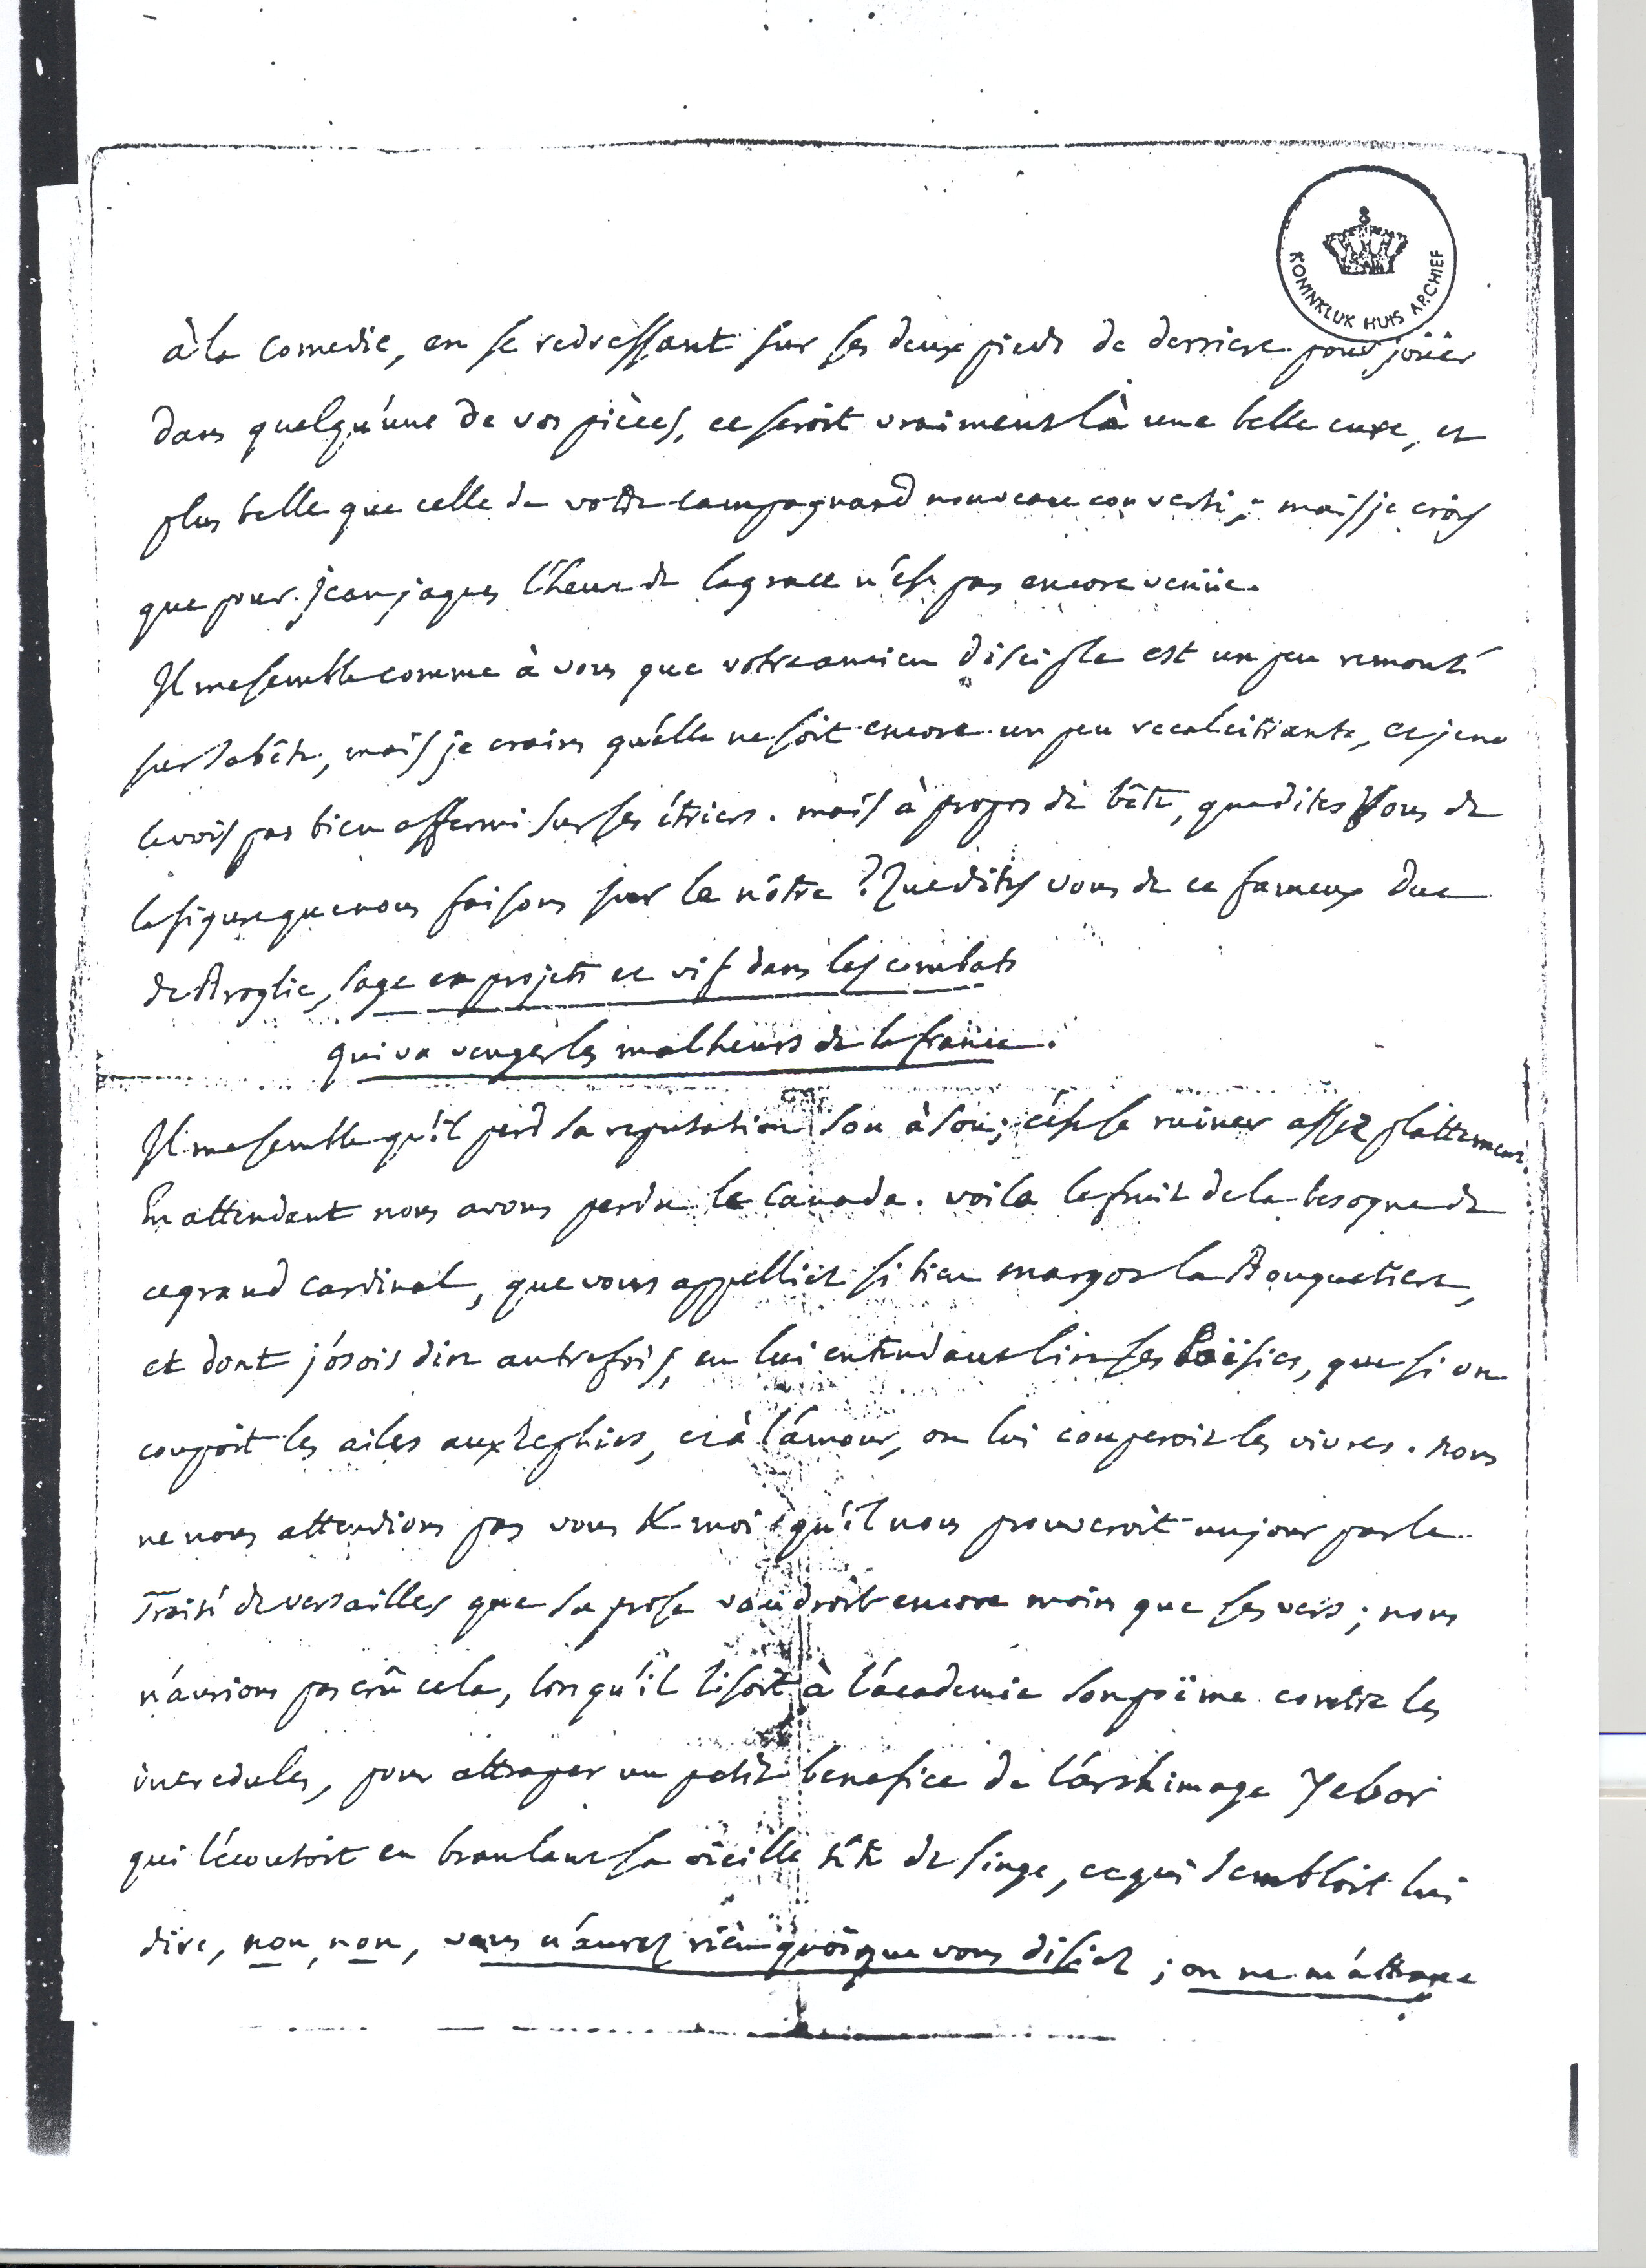 KONINKLIJK HUIS ARCHIEF
à la comedie, en se redressant sur ses deux pieds de derriere pour joüer
dans quelqu'une de vos pièces, ce seroit vraiment là une belle cure, et
plus belle que celle de votre campagnard nouveau converti; mais je crois
que pour Jean jaques l'heure de la grace n'est pas encore venüe.
Il me semble comme à vous que votre ancien disciple est un peu remonté
sur sa bête, mais je crains qu'elle ne soit encore un peu recalcitrante, et je ne
le vois pas bien affermi sur ses étriers. mais à propos de bête, que dites vous de
la figure que nous faisons sur la nôtre? Que dites vous de ce fameux Duc
de Broglie, sage en projets et vif dans les combats
qui va venger les malheurs de la france.
Il me semble qu'il perd sa reputation sou à sou; c'est se ruiner assez plattement.
En attendant nous avons perdu le Canada. voila le fruit de la besogne de
ce grand cardinal, que vous appelliez si bien margot la Bouquetiere,
et dont j'osois dire autrefois, en lui entendant lire ses Poësies, que si on
coupoit les ailes aux Zephirs, et à l'amour, on lui couperoit les vivres. nous
ne nous attendions pas vous & moi qu'il nous prouveroit un jour par le
Traité de versailles que sa prose vaudroit encore moins que ses vers; nous
n'aurions pas crû cela, lorsqu'il lisoit à l'academie son poëme contre les
incredules, pour attraper un petit benefice de l'archimage Yebor
qui l'écoutoit en branlant sa vieille tête de singe, et qui sembloit lui
dire, non, non, vous n'aurez rien quoique vous disiez; on ne m'attrape